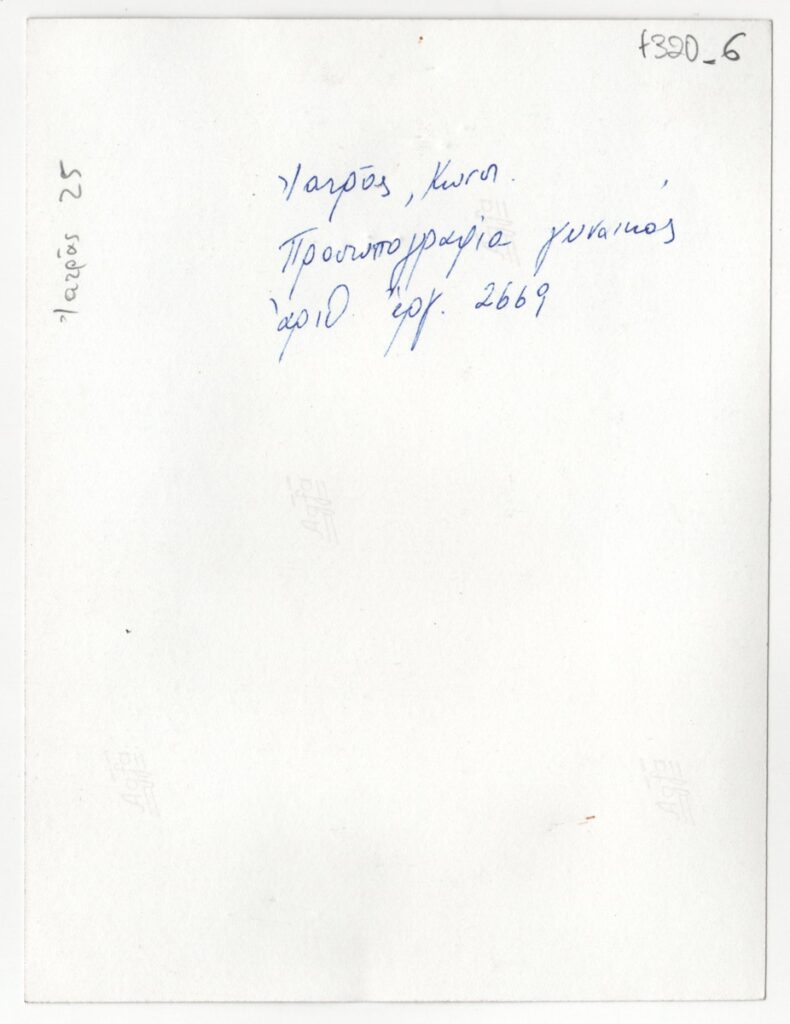 f320_6
Ἰατρᾶς 25
Ἰατρᾶς, Κωνστ.
Προσωπογραφία γυναικός
ἀριθ. ἔργ. 2669